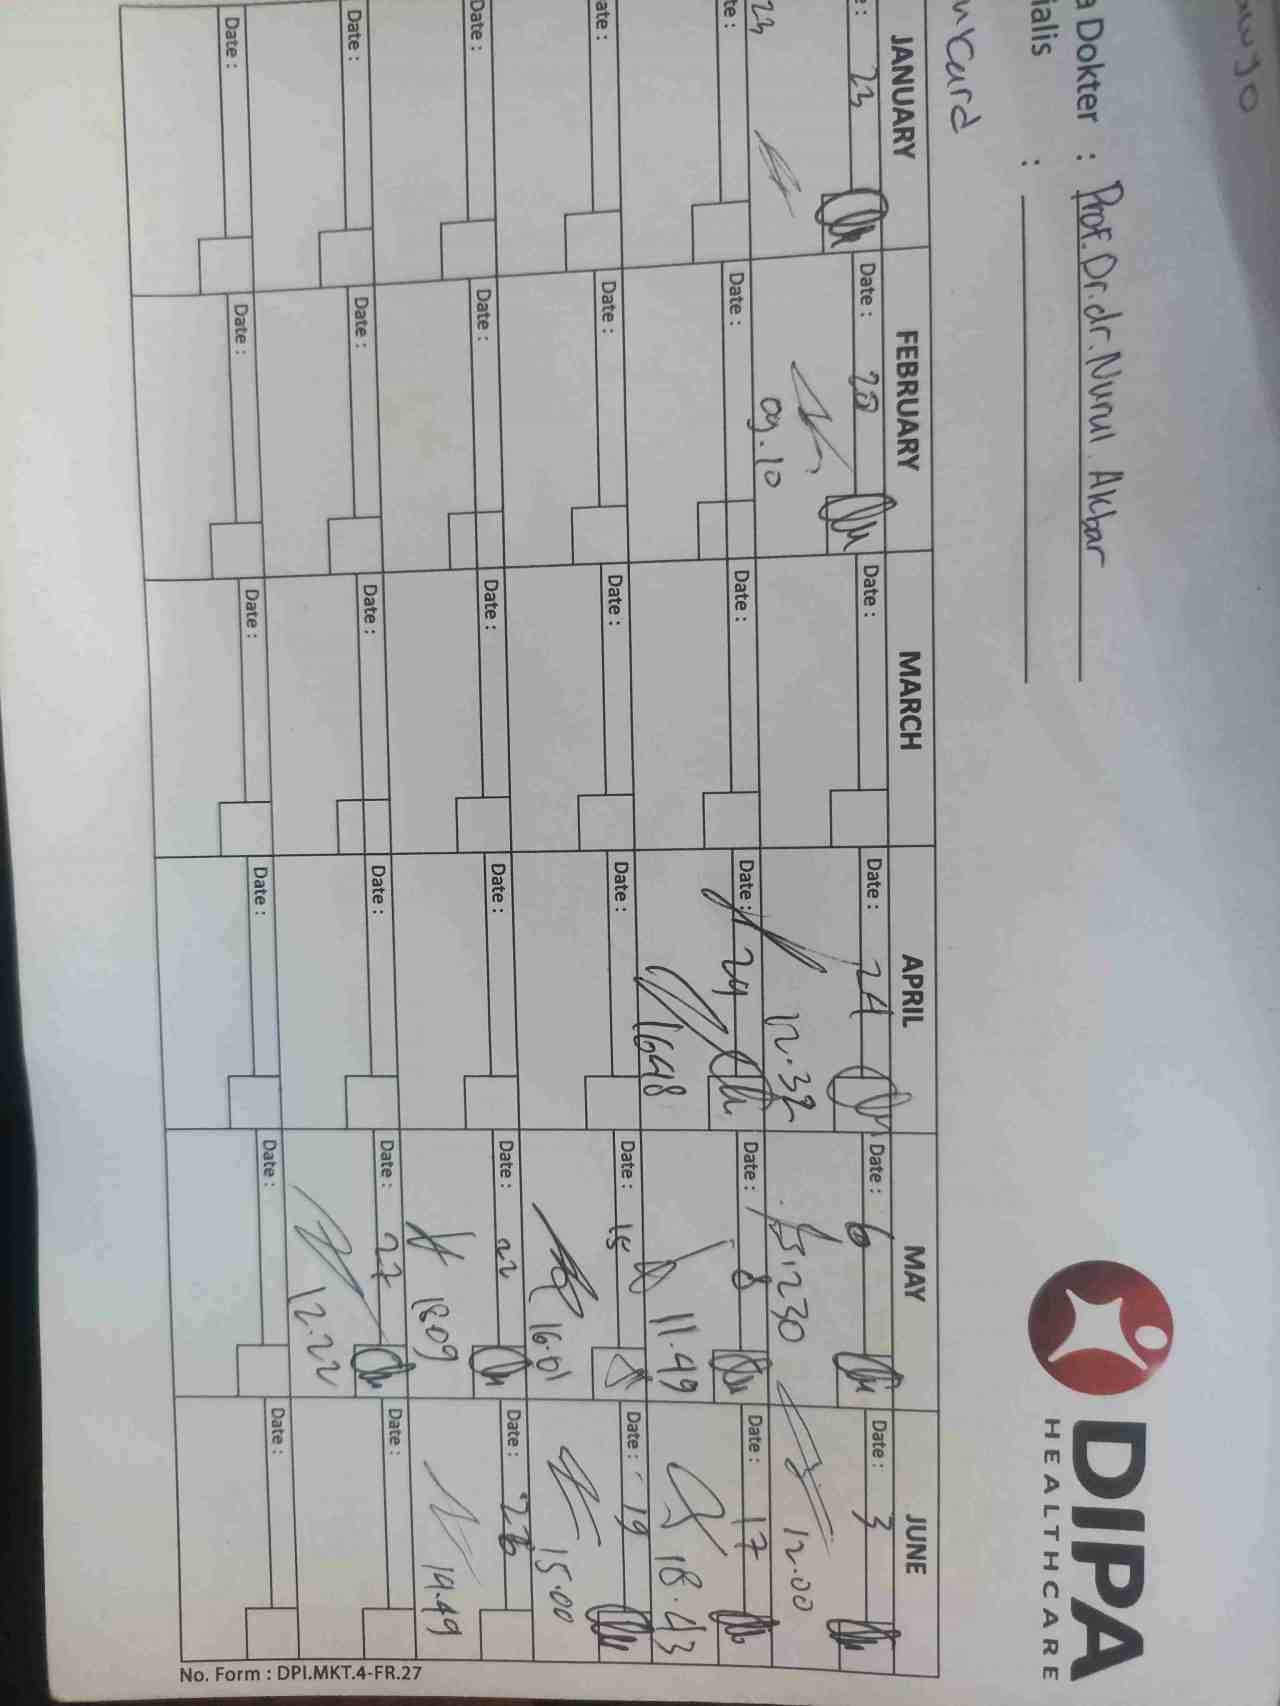 DIPA
HEALTHCARE
Dokter : Prof. Dr. dr. Nurul Akbar
ialis :
JANUARY FEBRUARY MARCH APRIL MAY JUNE
23 Date : 20 Date : Date : 24 Date : 6 Date : 3
23 09.10 12.32 1230 12.00
te : Date : Date : Date : 29 Date : 8 Date : 17
1648 11.49 18.43
ate : Date : Date : Date : Date : 15 Date : 19
16.01 15.00
Date : Date : Date : Date : Date : 22 Date : 26
1809 14.49
Date : Date : Date : Date : Date : 27 Date :
12.22
Date : Date : Date : Date : Date : Date :
No. Form : DPI.MKT.4-FR.27